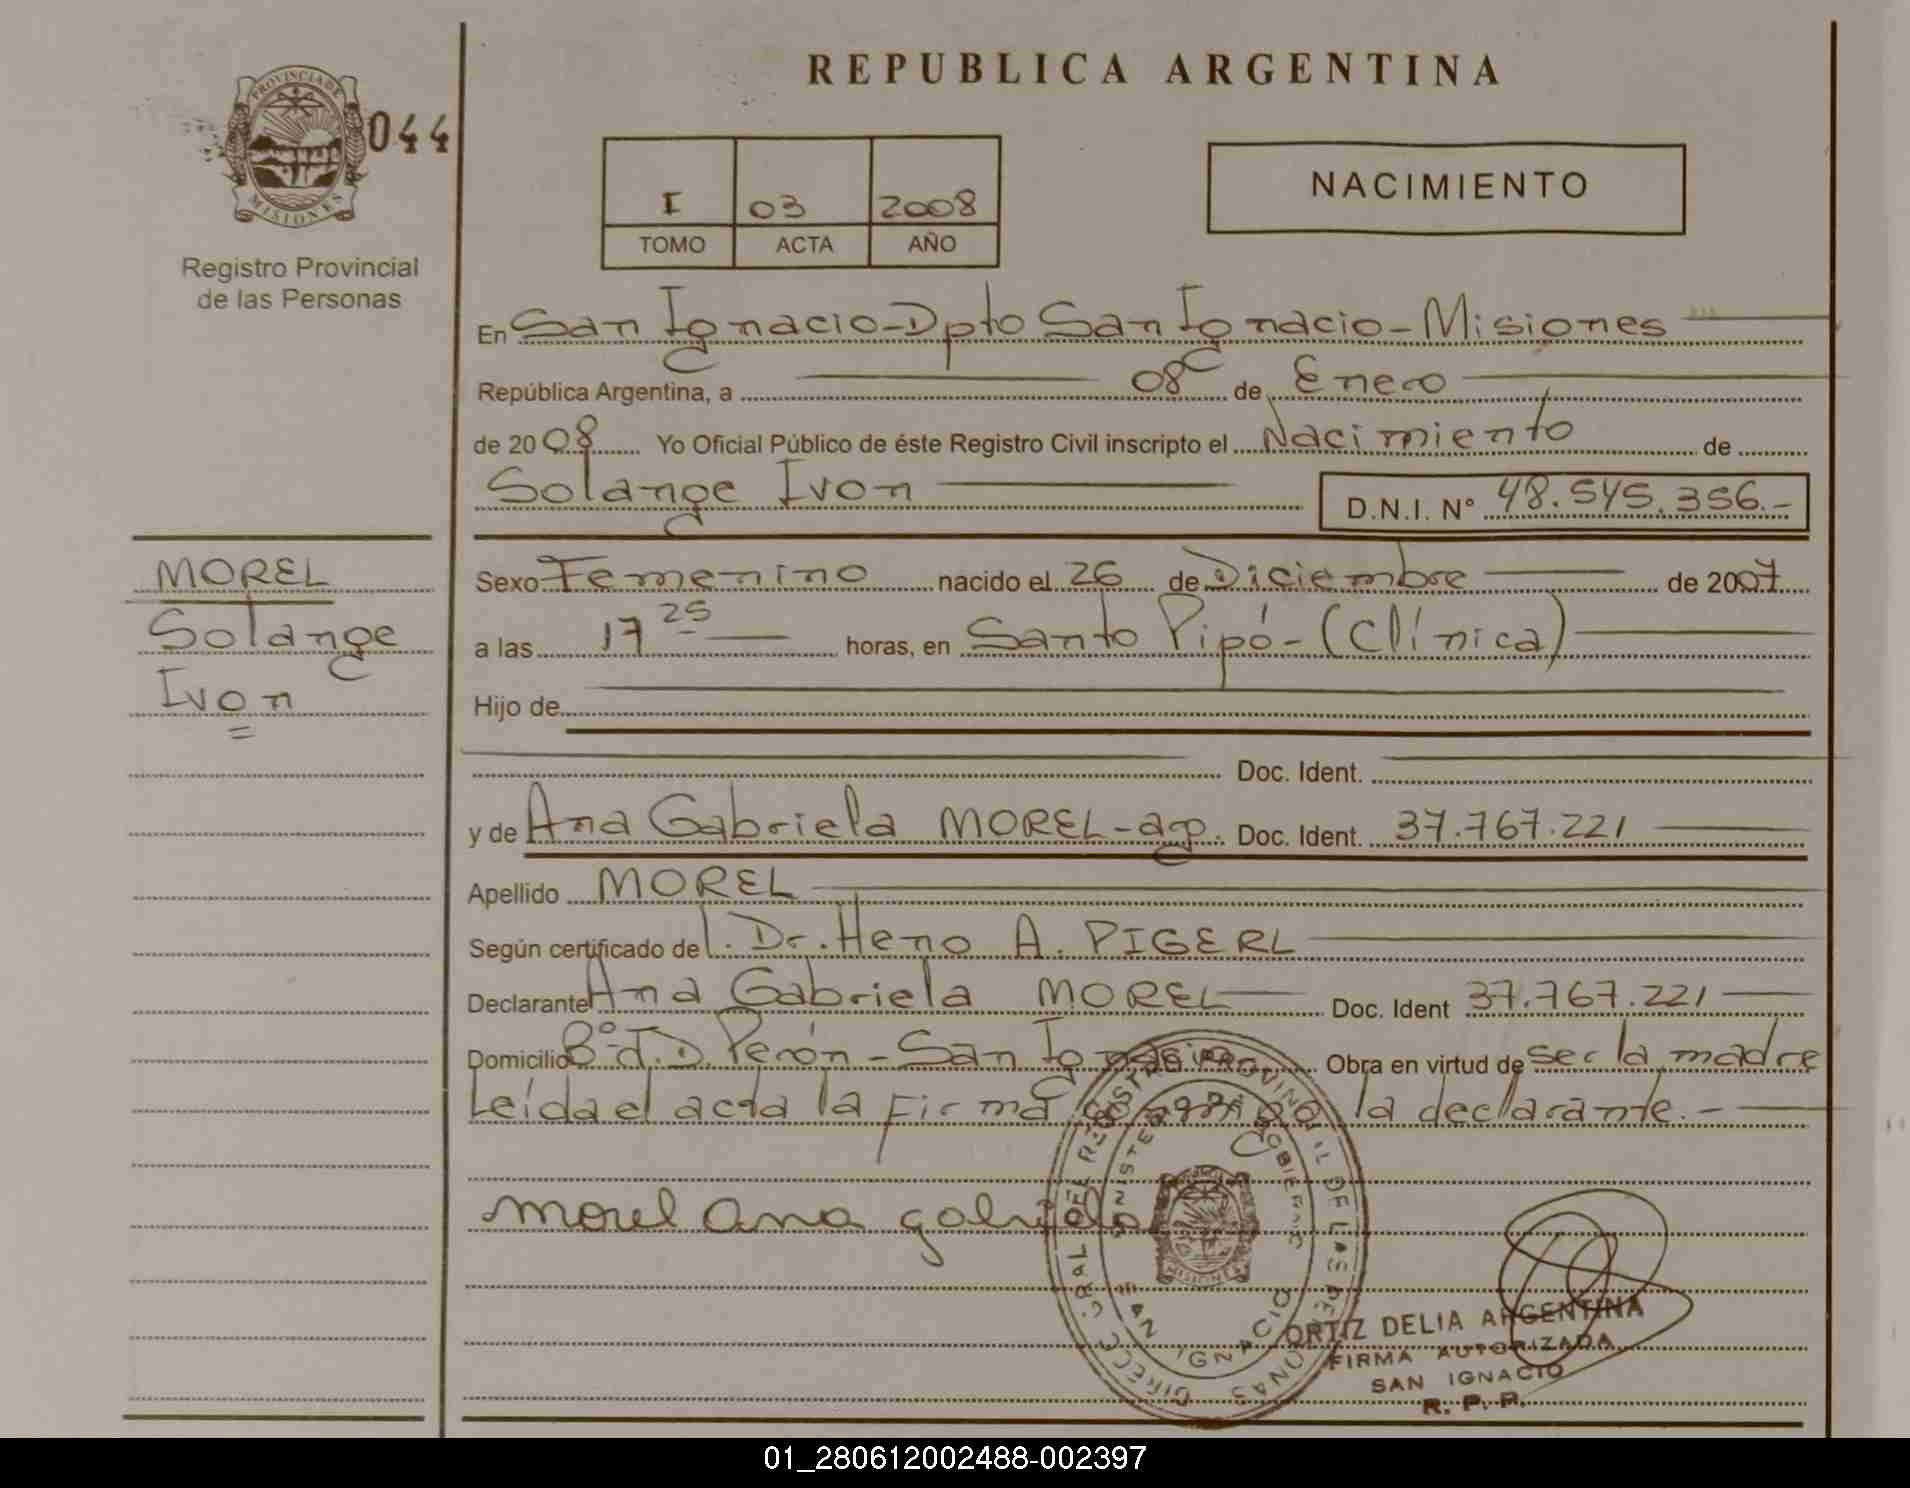 REPUBLICA ARGENTINA
PROVINCIA DE MISIONES
044
Registro Provincial
de las Personas
I 03 2008
TOMO ACTA AÑO
NACIMIENTO
En San Ignacio-Dpto San Ignacio-Misiones
República Argentina, a 08 de Enero
de 2008 Yo Oficial Público de éste Registro Civil inscripto el Nacimiento de
Solange Ivon D.N.I. N° 48.545.356.-
MOREL
Solange
Ivon
Sexo Femenino nacido el 26 de Diciembre de 2007
a las 17 25 horas, en Santo Pipó-(Clínica)
Hijo de
Doc. Ident.
y de Ana Gabriela MOREL-ag. Doc. Ident. 37.767.221
Apellido MOREL
Según certificado de l. Dr. Heno A. PIGERL
Declarante Ana Gabriela MOREL Doc. Ident 37.767.221
Domicilio B° J.D. Perón-San Ignacio Obra en virtud de ser la madre
Leída el acta la firma la declarante.-
morel ana gabriela
SAN IGNACIO
ORTIZ DELIA ARGENTINA
FIRMA AUTORIZADA
SAN IGNACIO
R. P. P.
01_280612002488-002397